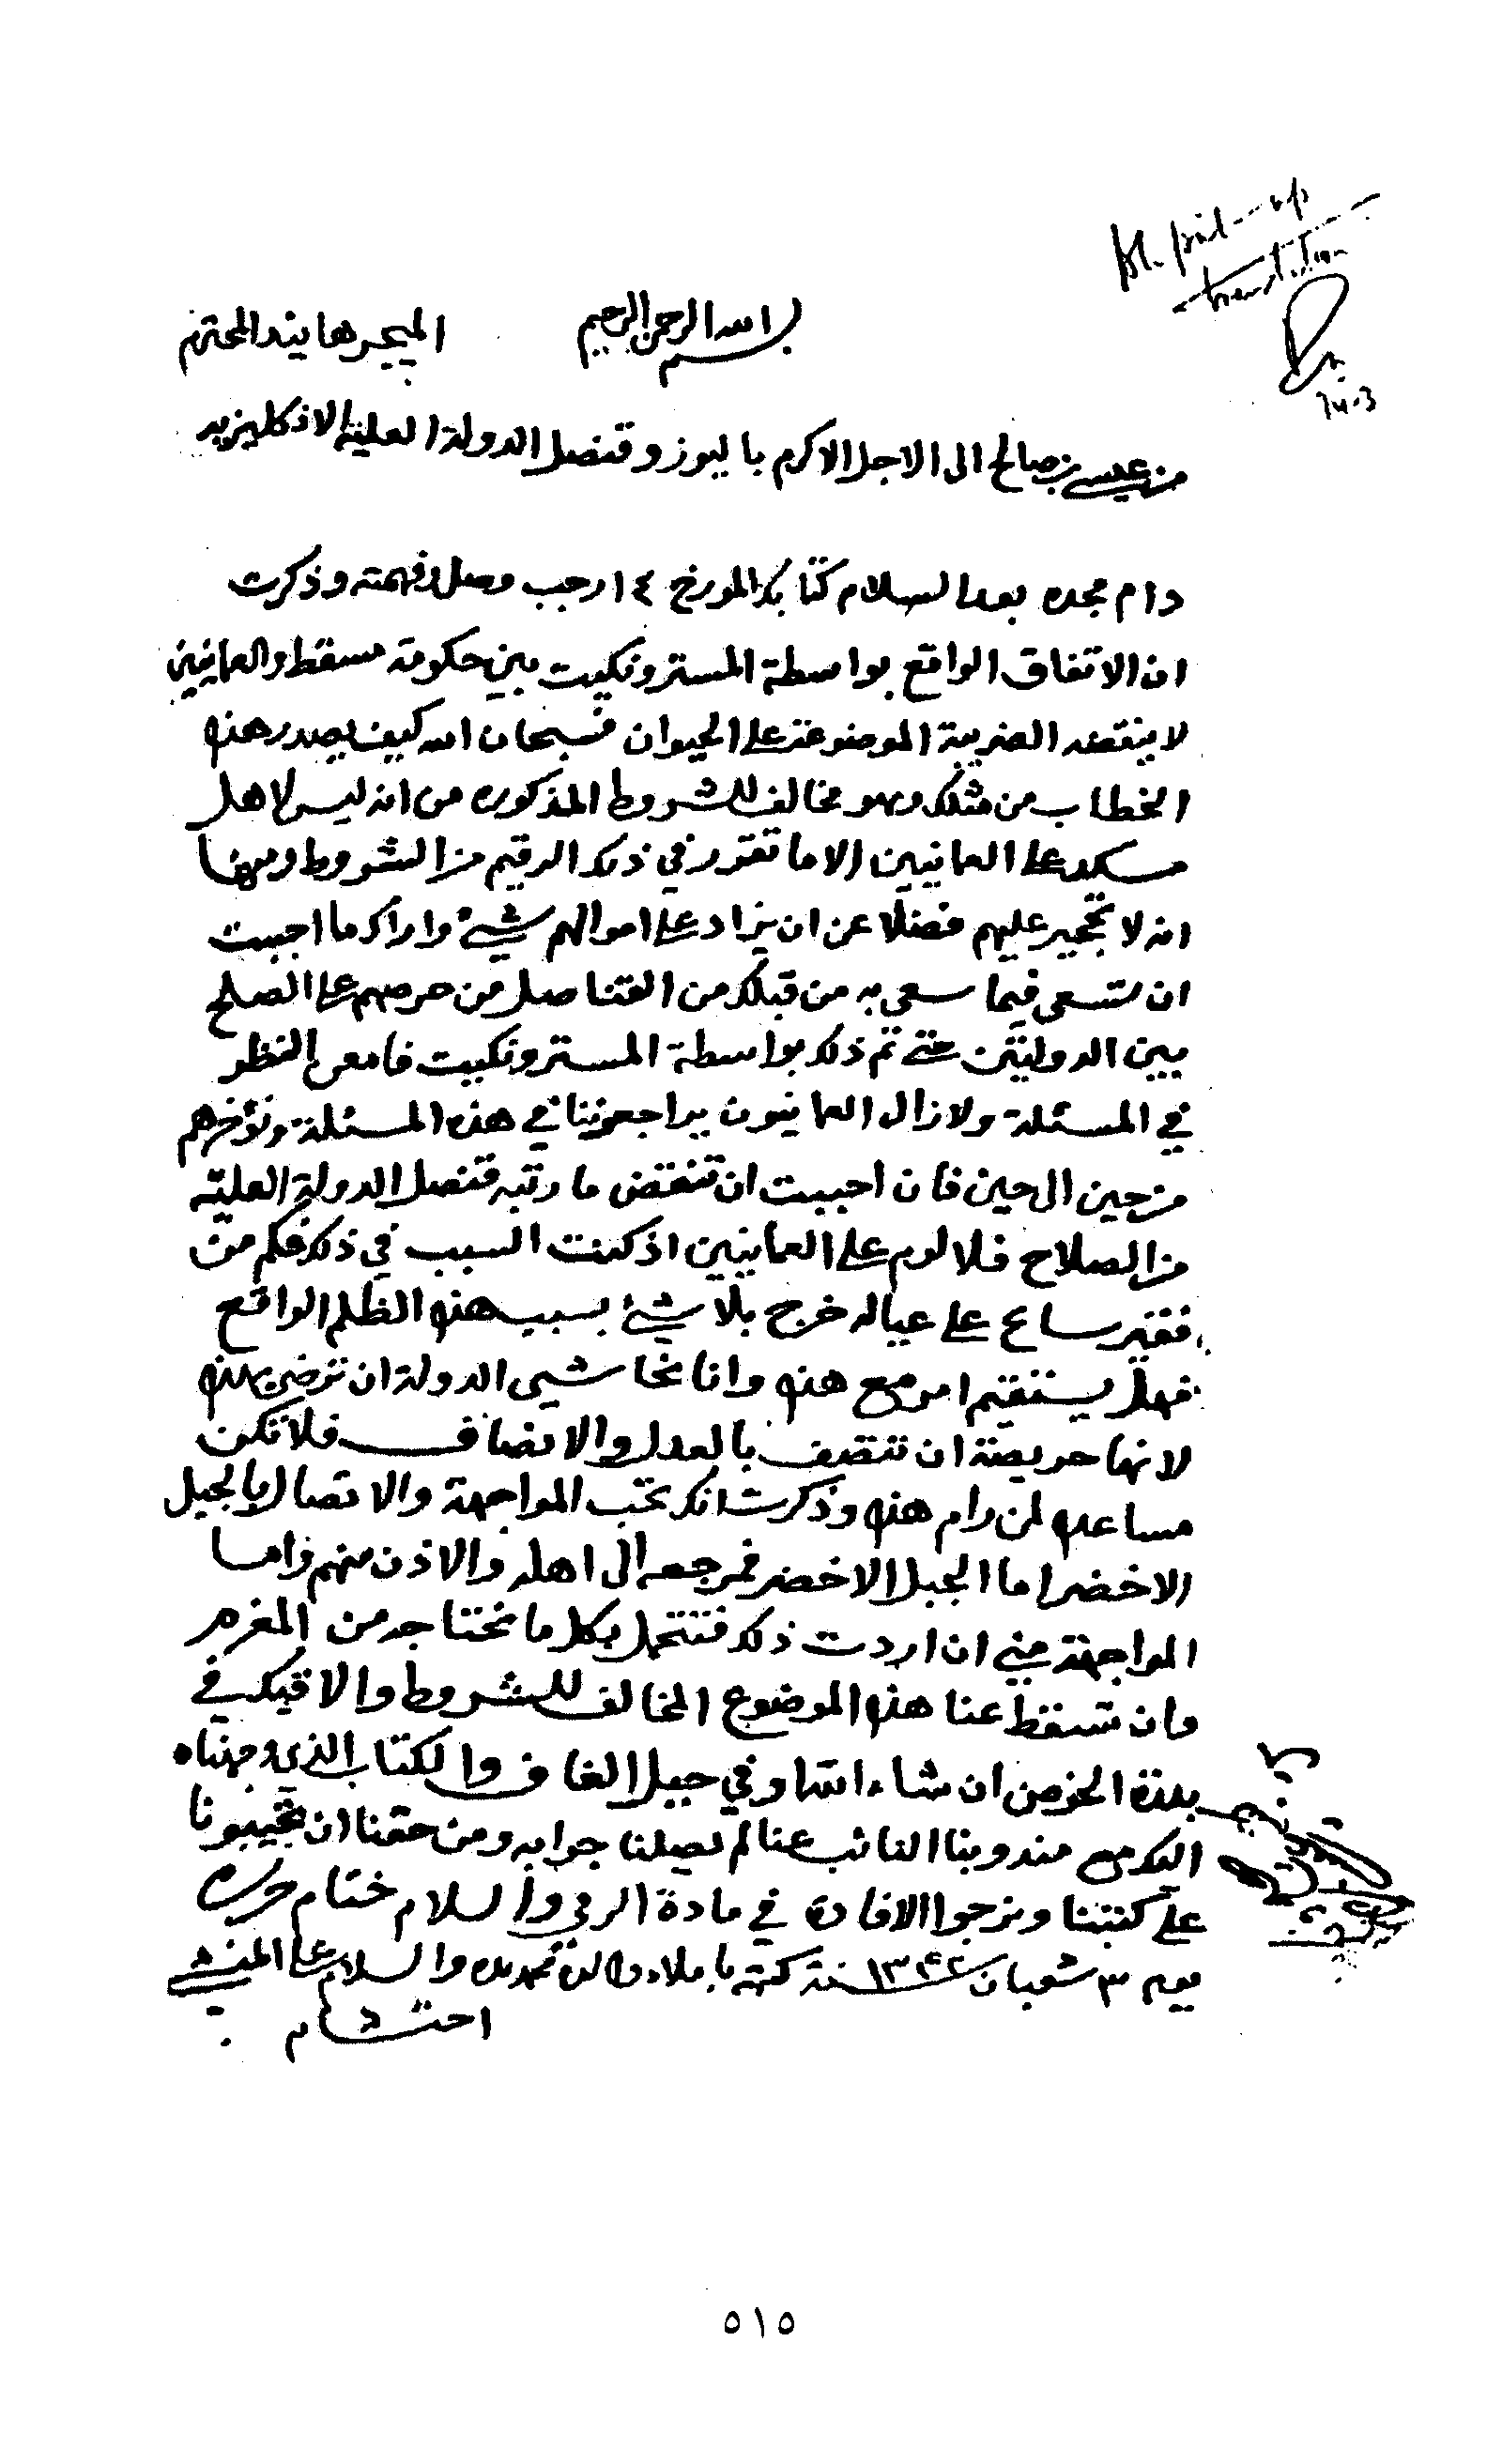 translation
بسم الله الرحمن الرحيم
الميجر هايند المحترم
من عيسى بن صالح الى الاجل الاكرم باليوز وقنصل الدولة العلية الانكليزيه
دام مجده بعد السلام كتابك المورخ ١٤ رجب وصل وفهمته وذكرت
ان الاتفاق الواقع بواسطة المستر ونكيت بين حكومة مسقط والعمانيين
لا ينقضه الضريبة الموضوعة على الحيوان فسبحان الله كيف يصدر هذه
الخطاب من مثلك وهو مخالف للشروط المذكوره من انه ليس لاهل
مسكد على العمانيين الا ما تقرر في ذلك الرقيم من الشروط ومنها
انه لا تحجير عليهم فضلا عن ان يزاد على اموالهم شيء واراك ما احببت
ان تسعى فيما سعى به من قبلك من القناصل من حرصهم على الصلح
بين الدولتين حتى تم ذلك بواسطة المستر ونكيت فامعن النظر
في المسئلة ولا زال العمانيون يراجعوننا في هذه المسئلة ونؤخرهم
من حين الى حين فان احببت ان تنقض ما رتبه قنصل الدولة العليه
من الصلاح فلا لوم على العمانيين اذ كنت السبب في ذلك فكم من
فقير ساع على عياله خرج بلا شيء بسبب هذه الظلم الواقع
فهل يستقيم امر مع هذه وانا نحاشي الدولة ان ترضى بهذه
لانها حريصة ان تتصف بالعدل والانصاف فلا تكن
مساعده لمن رام هذه وذكرت انك تحب المواجهة والاتصال بالجبل
الاخضر اما الجبل الاخضر فمرجعه الى اهله والاذن منهم واما
المواجهة مني ان اردت ذلك فتتحمل بكل ما نحتاجه من المغرم
وان تسقط عنا هذه الموضوع المخالف للشروط والاقيك في
بلدة الخوض ان شاء الله او في جبل الغاف والكتاب الذي وجهناه
اليك مع مندوبنا النائب عنا لم يصلنا جوابه ومن حقنا ان تجيبونا
على كتبنا ونرجوا الافادة في مادة الرقي والسلام ختام حرره
يوم ٣ شعبان سنة ١٣٤٢ كتبه باملاء والسلام على المنشي
احتشام
٥١٥